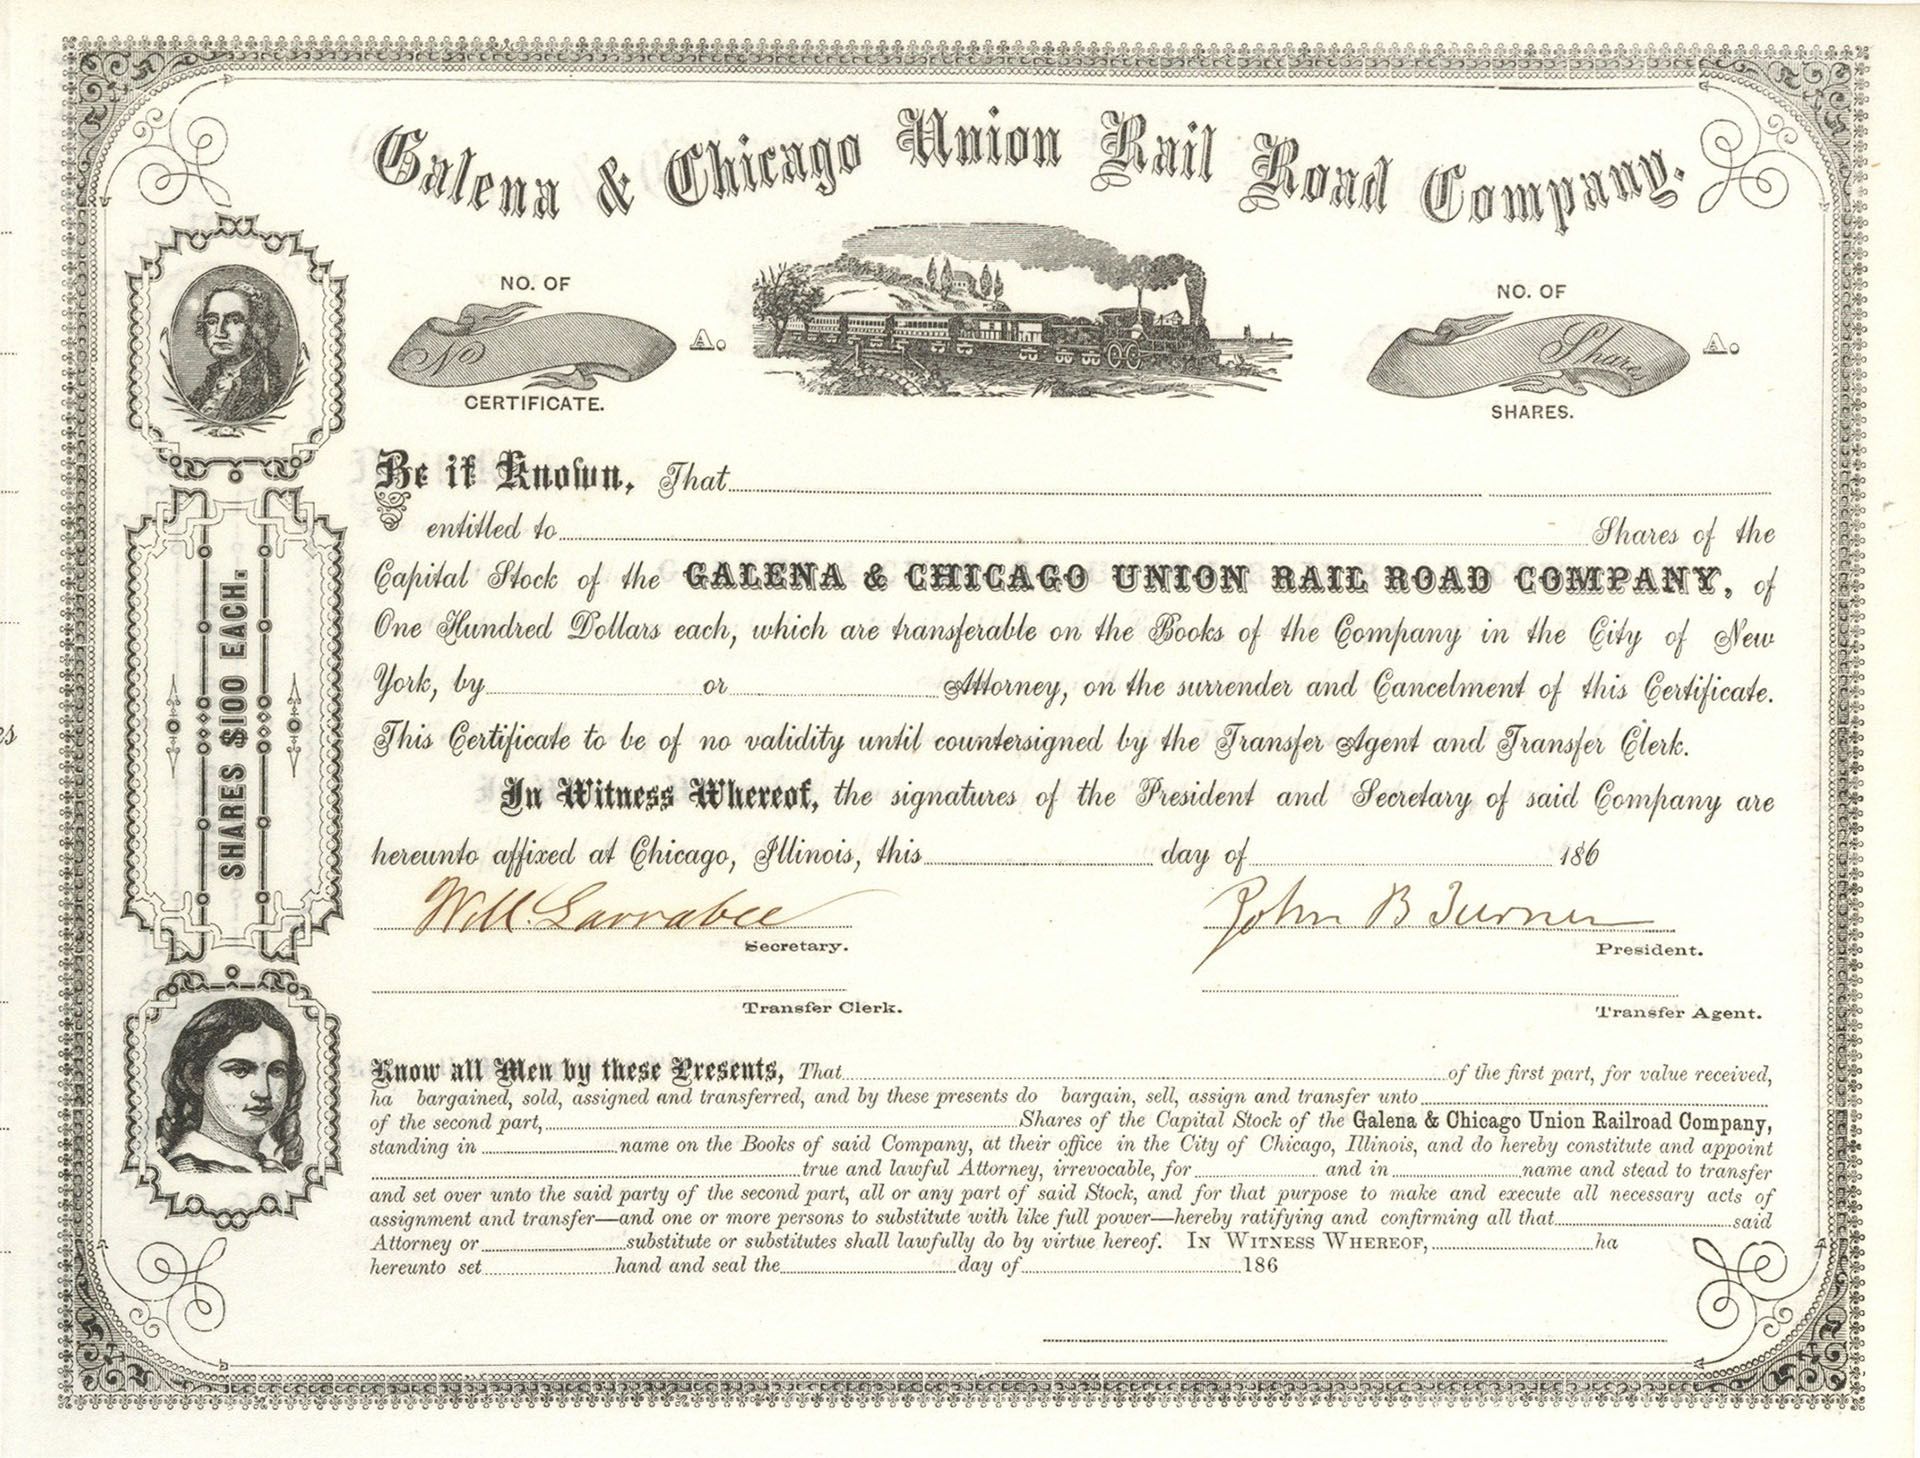 Galena & Chicago Union Rail Road Company.
NO. OF
No
A.
CERTIFICATE.
NO. OF
Shares
A.
SHARES.
SHARES $100 EACH.
Be it Known, That
entitled to Shares of the
Capital Stock of the GALENA & CHICAGO UNION RAIL ROAD COMPANY, of
One Hundred Dollars each, which are transferable on the Books of the Company in the City of New
York, by or Attorney, on the surrender and Cancelment of this Certificate.
This Certificate to be of no validity until countersigned by the Transfer Agent and Transfer Clerk.
In Witness Whereof, the signatures of the President and Secretary of said Company are
hereunto affixed at Chicago, Illinois, this day of 186
Will. Larrabee
John B Turner
Secretary.
President.
Transfer Clerk.
Transfer Agent.
Know all Men by these Presents, That of the first part, for value received,
ha bargained, sold, assigned and transferred, and by these presents do bargain, sell, assign and transfer unto
of the second part, Shares of the Capital Stock of the Galena & Chicago Union Railroad Company,
standing in name on the Books of said Company, at their office in the City of Chicago, Illinois, and do hereby constitute and appoint
true and lawful Attorney, irrevocable, for and in name and stead to transfer
and set over unto the said party of the second part, all or any part of said Stock, and for that purpose to make and execute all necessary acts of
assignment and transfer—and one or more persons to substitute with like full power—hereby ratifying and confirming all that said
Attorney or substitute or substitutes shall lawfully do by virtue hereof. IN WITNESS WHEREOF, ha
hereunto set hand and seal the day of 186